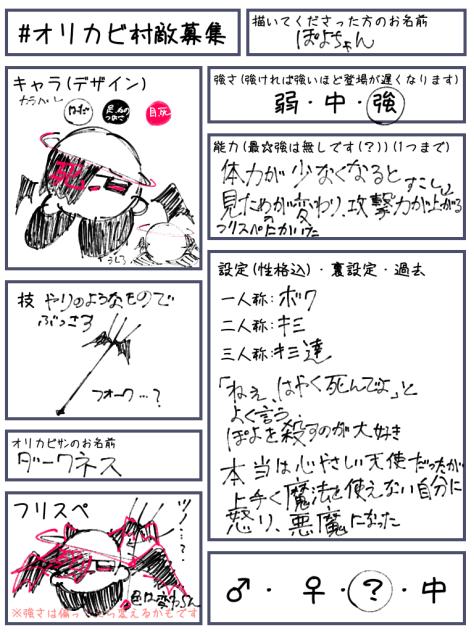 #オリカビ村敵募集
描いてくださった方のお名前
ぽよちゃん
キャラ(デザイン)
カラパレ
からだ
目、死
死
うしろ
強さ(強ければ強いほど登場が遅くなります)
弱・中・強
能力(最☆強は無しです(?))(1つまで)
体力が少なくなると
見ためが変わり、攻撃力が上がる
すこし
フリスペの
技 やりのようなもので
ぶっさす
フォーク…?
オリカビサンのお名前
ダークネス
設定(性格込)・裏設定・過去
一人称:ボク
二人称:キミ
三人称:キミ達
「ねぇ、はやく死んでよ」と
よく言う。
ぽよを殺すのが大好き
本当は心やさしい天使だったが
上手く魔法を使えない自分に
怒り、悪魔になった
フリスペ
※強さは偏ってたら変えるかもです
♂・♀・?・中